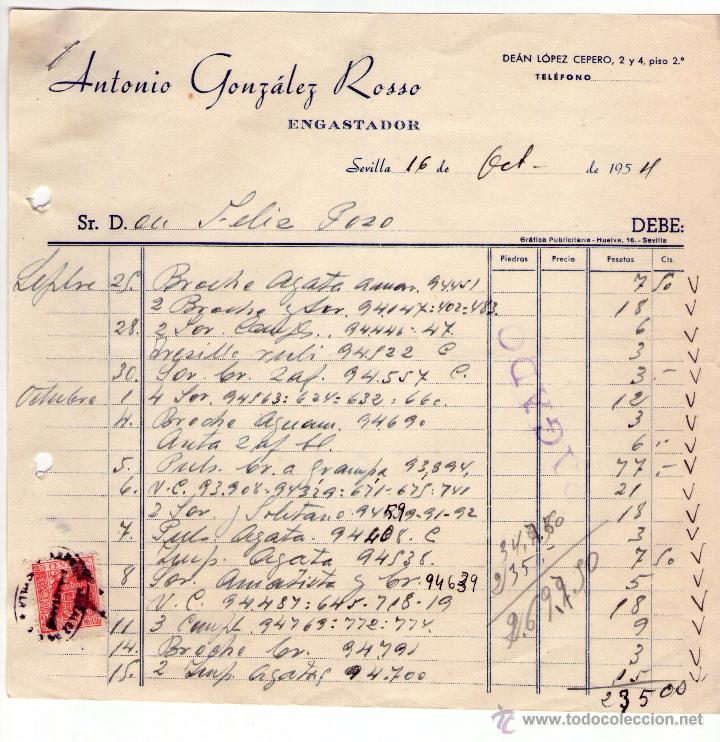 Antonio González Rosso
ENGASTADOR
DEÁN LÓPEZ CEPERO, 2 y 4, piso 2.º
TELÉFONO
Sevilla 16 de Oct- de 1954
Sr. D. on Felix Pozo DEBE:
Gráfica Publicitaria - Huelva, 16. - Sevilla
Piedras Precio Pesetas Cts.
25. Broche Agata amar. 94451 7 50
2 Broche y Sor. 94147=402=483. 18
28. 2 Sor. 94446=47 6
rubi 94522 C 3
30. Sor. br. 2 af. 94.557 C. 3 .-
Octubre 1 4 Sor. 94563=634=632=660. 12
4. Broche Aguam. 94690 3
2 af bl. 6 .-
5. Puls. br. a grampa 93,894. 77 .-
6. V.C. 93.908-94379=671-675=741 21
2 Sor. y Solitario 9459-91-92 18
7. Puls Agata. 94408. C 3
Imp. Agata 94538. 7 50
8 Sor. Amatista y br. 94639 5
V.C. 94487=645-718-19 18
11 3 94769=772=774. 9
14. Broche br. 94791 3
15. 2 Imp. agatas 94.700 15
235 00
PAGADO
www.todocoleccion.net